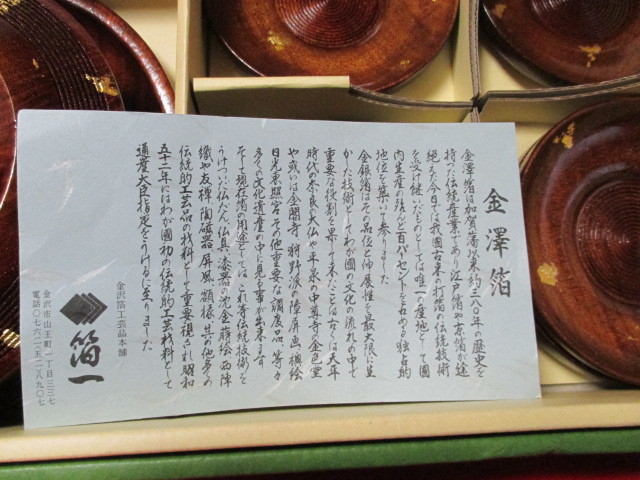 金澤箔
金澤箔は加賀藩以来約三八〇年の歴史を
持った伝統産業であり江戸箔や京都箔が途
絶えた今日では我國古来の打箔の伝統技術
を受け継いだものとしては唯一の産地として國
内生産の殆んど百パーセントを占める独占的
地位を築いて参りました
金銀箔はその品位と伸展性を最大限に生
かした技術としてわが國の文化の流れの中で
重要な役割を果して来たことは古くは天平
時代の奈良の大仏や平泉の中尊寺の金色堂
や或いは金閣寺、狩野派の障屏画、桃山
日光東照宮その他重要な調度品、等々
多くの文化遺産の中に見る事が出来ます
そして現代箔の用途としてはこれ等伝統技術を
うけついだ仏だん、仏具、漆器の沈金蒔絵、西陣
織や友禅、陶磁器、屏風、額椽、其の他多くの
伝統的工芸品の材料として重要視され昭和
五十二年にはわが國初の伝統的工芸材料として
通産大臣指定をうけるに至りました
金沢箔工芸品本舗
箔一
金沢市山王町一丁目三三七
電話〇七六二-五二-八九〇七